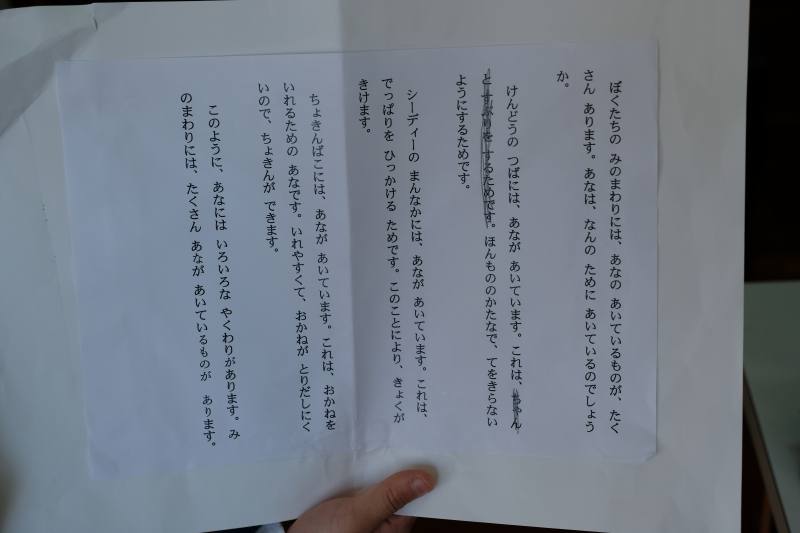 ぼくたちの みのまわりには、あなの あいているものが、たく
さん あります。あなは、なんの ために あいているのでしょう
か。
けんどうの つばには、あなが あいています。これは、ちゃん
とすぶりを するためです。ほんもののかたなで、てをきらない
ようにするためです。
シーディーの まんなかには、あなが あいています。これは、
でっぱりを ひっかける ためです。このことにより、きょくが
きけます。
ちょきんばこには、あなが あいています。これは、おかねを
いれるための あなです。いれやすくて、おかねが とりだしにく
いので、ちょきんが できます。
このように、あなには いろいろな やくわりがあります。み
のまわりには、たくさん あなが あいているものが あります。